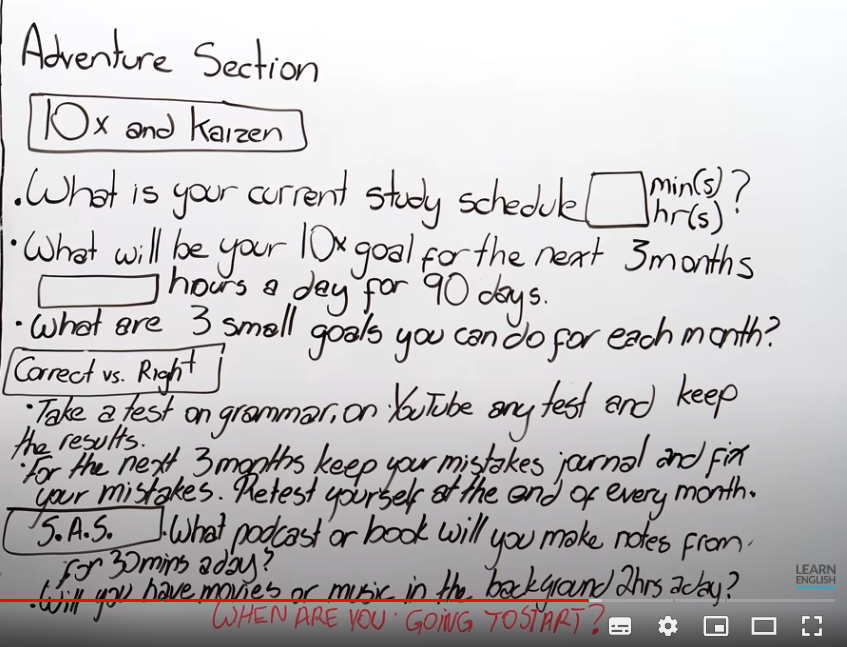 Adventure Section
10x and Kaizen
• What is your current study schedule min(s) ?
hr(s)
• What will be your 10x goal for the next 3 months
hours a day for 90 days.
• What are 3 small goals you can do for each month?
Correct vs. Right
• Take a test on grammar, on YouTube any test and keep
the results.
• For the next 3 months keep your mistakes journal and fix
your mistakes. Retest yourself at the end of every month.
S.A.S. • What podcast or book will you make notes from
for 30mins a day?
• Will you have movies or music in the background 2hrs a day?
WHEN ARE YOU GOING TO START?
LEARN
ENGLISH